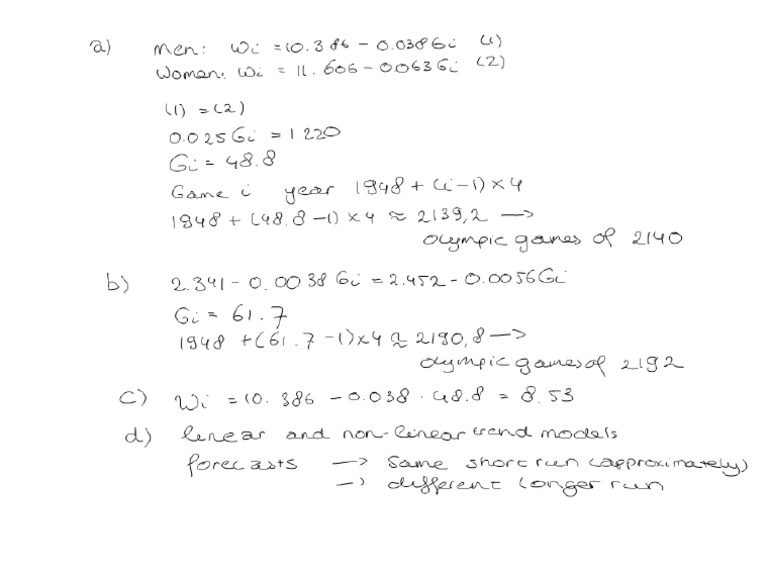 a) Men: Wi = 10.386 - 0.038Gi (1)
Women: Wi = 11.606 - 0.063Gi (2)
(1) = (2)
0.025Gi = 1.220
Gi = 48.8
Game i year 1948 + (i-1) × 4
1948 + (48.8 - 1) × 4 ≈ 2139,2 →
olympic games of 2140
b) 2.341 - 0.0038Gi = 2.452 - 0.0056Gi
Gi = 61.7
1948 + (61.7 - 1) × 4 ≈ 2190,8 →
olympic games of 2192
c) Wi = 10.386 - 0.038 · 48.8 = 8.53
d) linear and non-linear trend models
forecasts → same short run (approximately)
→ different longer run